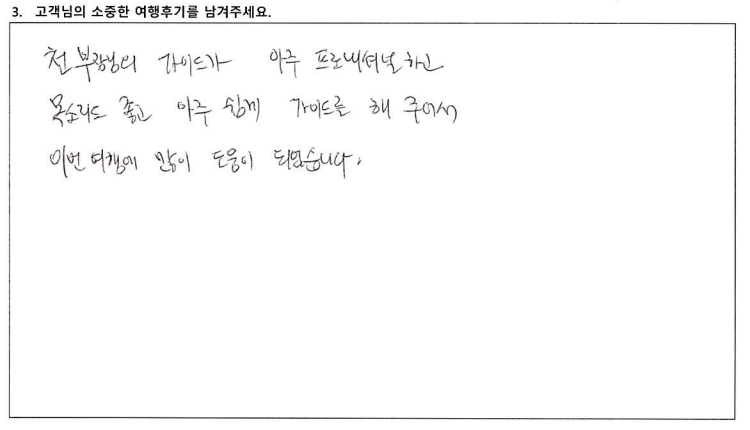 3. 고객님의 소중한 여행후기를 남겨주세요.
천부장님의 가이드가 아주 프로내셔널하고
목소리도 좋고 아주 쉽게 가이드를 해 주어서
이번 여행에 많이 도움이 되었습니다.